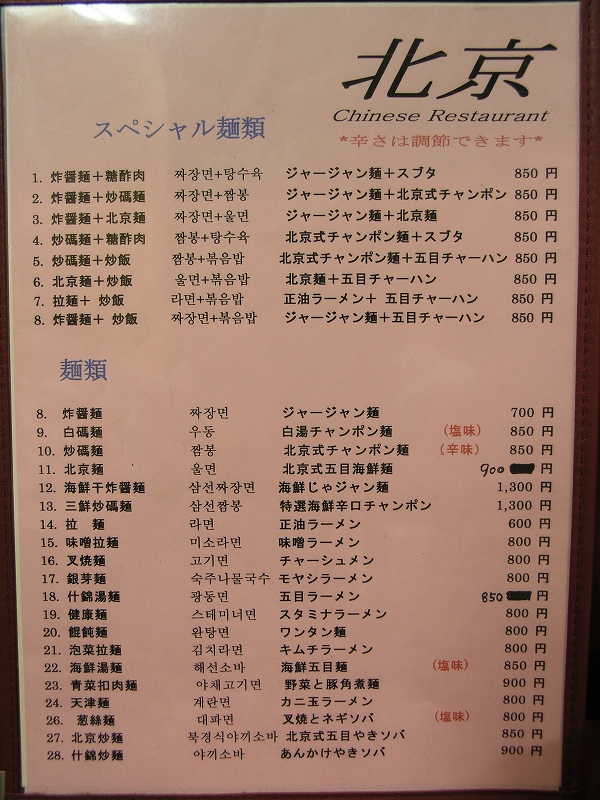 北京
Chinese Restaurant
*辛さは調節できます*
スペシャル麺類
1. 炸醤麺+糖酢肉 짜장면+탕수육 ジャージャン麺+スブタ 850 円
2. 炸醤麺+炒碼麺 짜장면+짬봉 ジャージャン麺+北京式チャンポン 850 円
3. 炸醤麺+北京麺 짜장면+울면 ジャージャン麺+北京麺 850 円
4. 炒碼麺+糖酢肉 짬봉+탕수육 北京式チャンポン麺+スブタ 850 円
5. 炒碼麺+炒飯 짬봉+볶음밥 北京式チャンポン麺+五目チャーハン 850 円
6. 北京麺+炒飯 울면+볶음밥 北京麺+五目チャーハン 850 円
7. 拉麺+ 炒飯 라면+볶음밥 正油ラーメン+ 五目チャーハン 850 円
8. 炸醤麺+ 炒飯 짜장면+볶음밥 ジャージャン麺+五目チャーハン 850 円
麺類
8. 炸醤麺 짜장면 ジャージャン麺 700 円
9. 白碼麺 우동 白湯チャンポン麺 (塩味) 850 円
10. 炒碼麺 짬봉 北京式チャンポン麺 (辛味) 850 円
11. 北京麺 울면 北京式五目海鮮麺 900 円
12. 海鮮干炸醤麺 삼선짜장면 海鮮じゃジャン麺 1,300 円
13. 三鮮炒碼麺 삼선짬봉 特選海鮮辛口チャンポン 1,300 円
14. 拉 麺 라면 正油ラーメン 600 円
15. 味噌拉麺 미소라면 味噌ラーメン 800 円
16. 叉焼麺 고기면 チャーシュメン 800 円
17. 銀芽麺 숙주나물국수 モヤシラーメン 800 円
18. 什錦湯麺 광동면 五目ラーメン 850 円
19. 健康麺 스테미너면 スタミナラーメン 800 円
20. 餛飩麺 완탕면 ワンタン麺 800 円
21. 泡菜拉麺 김치라면 キムチラーメン 800 円
22. 海鮮湯麺 해선소바 海鮮五目麺 (塩味) 850 円
23. 青菜扣肉麺 야채고기면 野菜と豚角煮麺 900 円
24. 天津麺 계란면 カニ玉ラーメン 800 円
26. 葱絲麺 대파면 叉焼とネギソバ (塩味) 800 円
27. 北京炒麺 북경식야끼소바 北京式五目やきソバ 850 円
28. 什錦炒麺 야끼소바 あんかけやきソバ 900 円